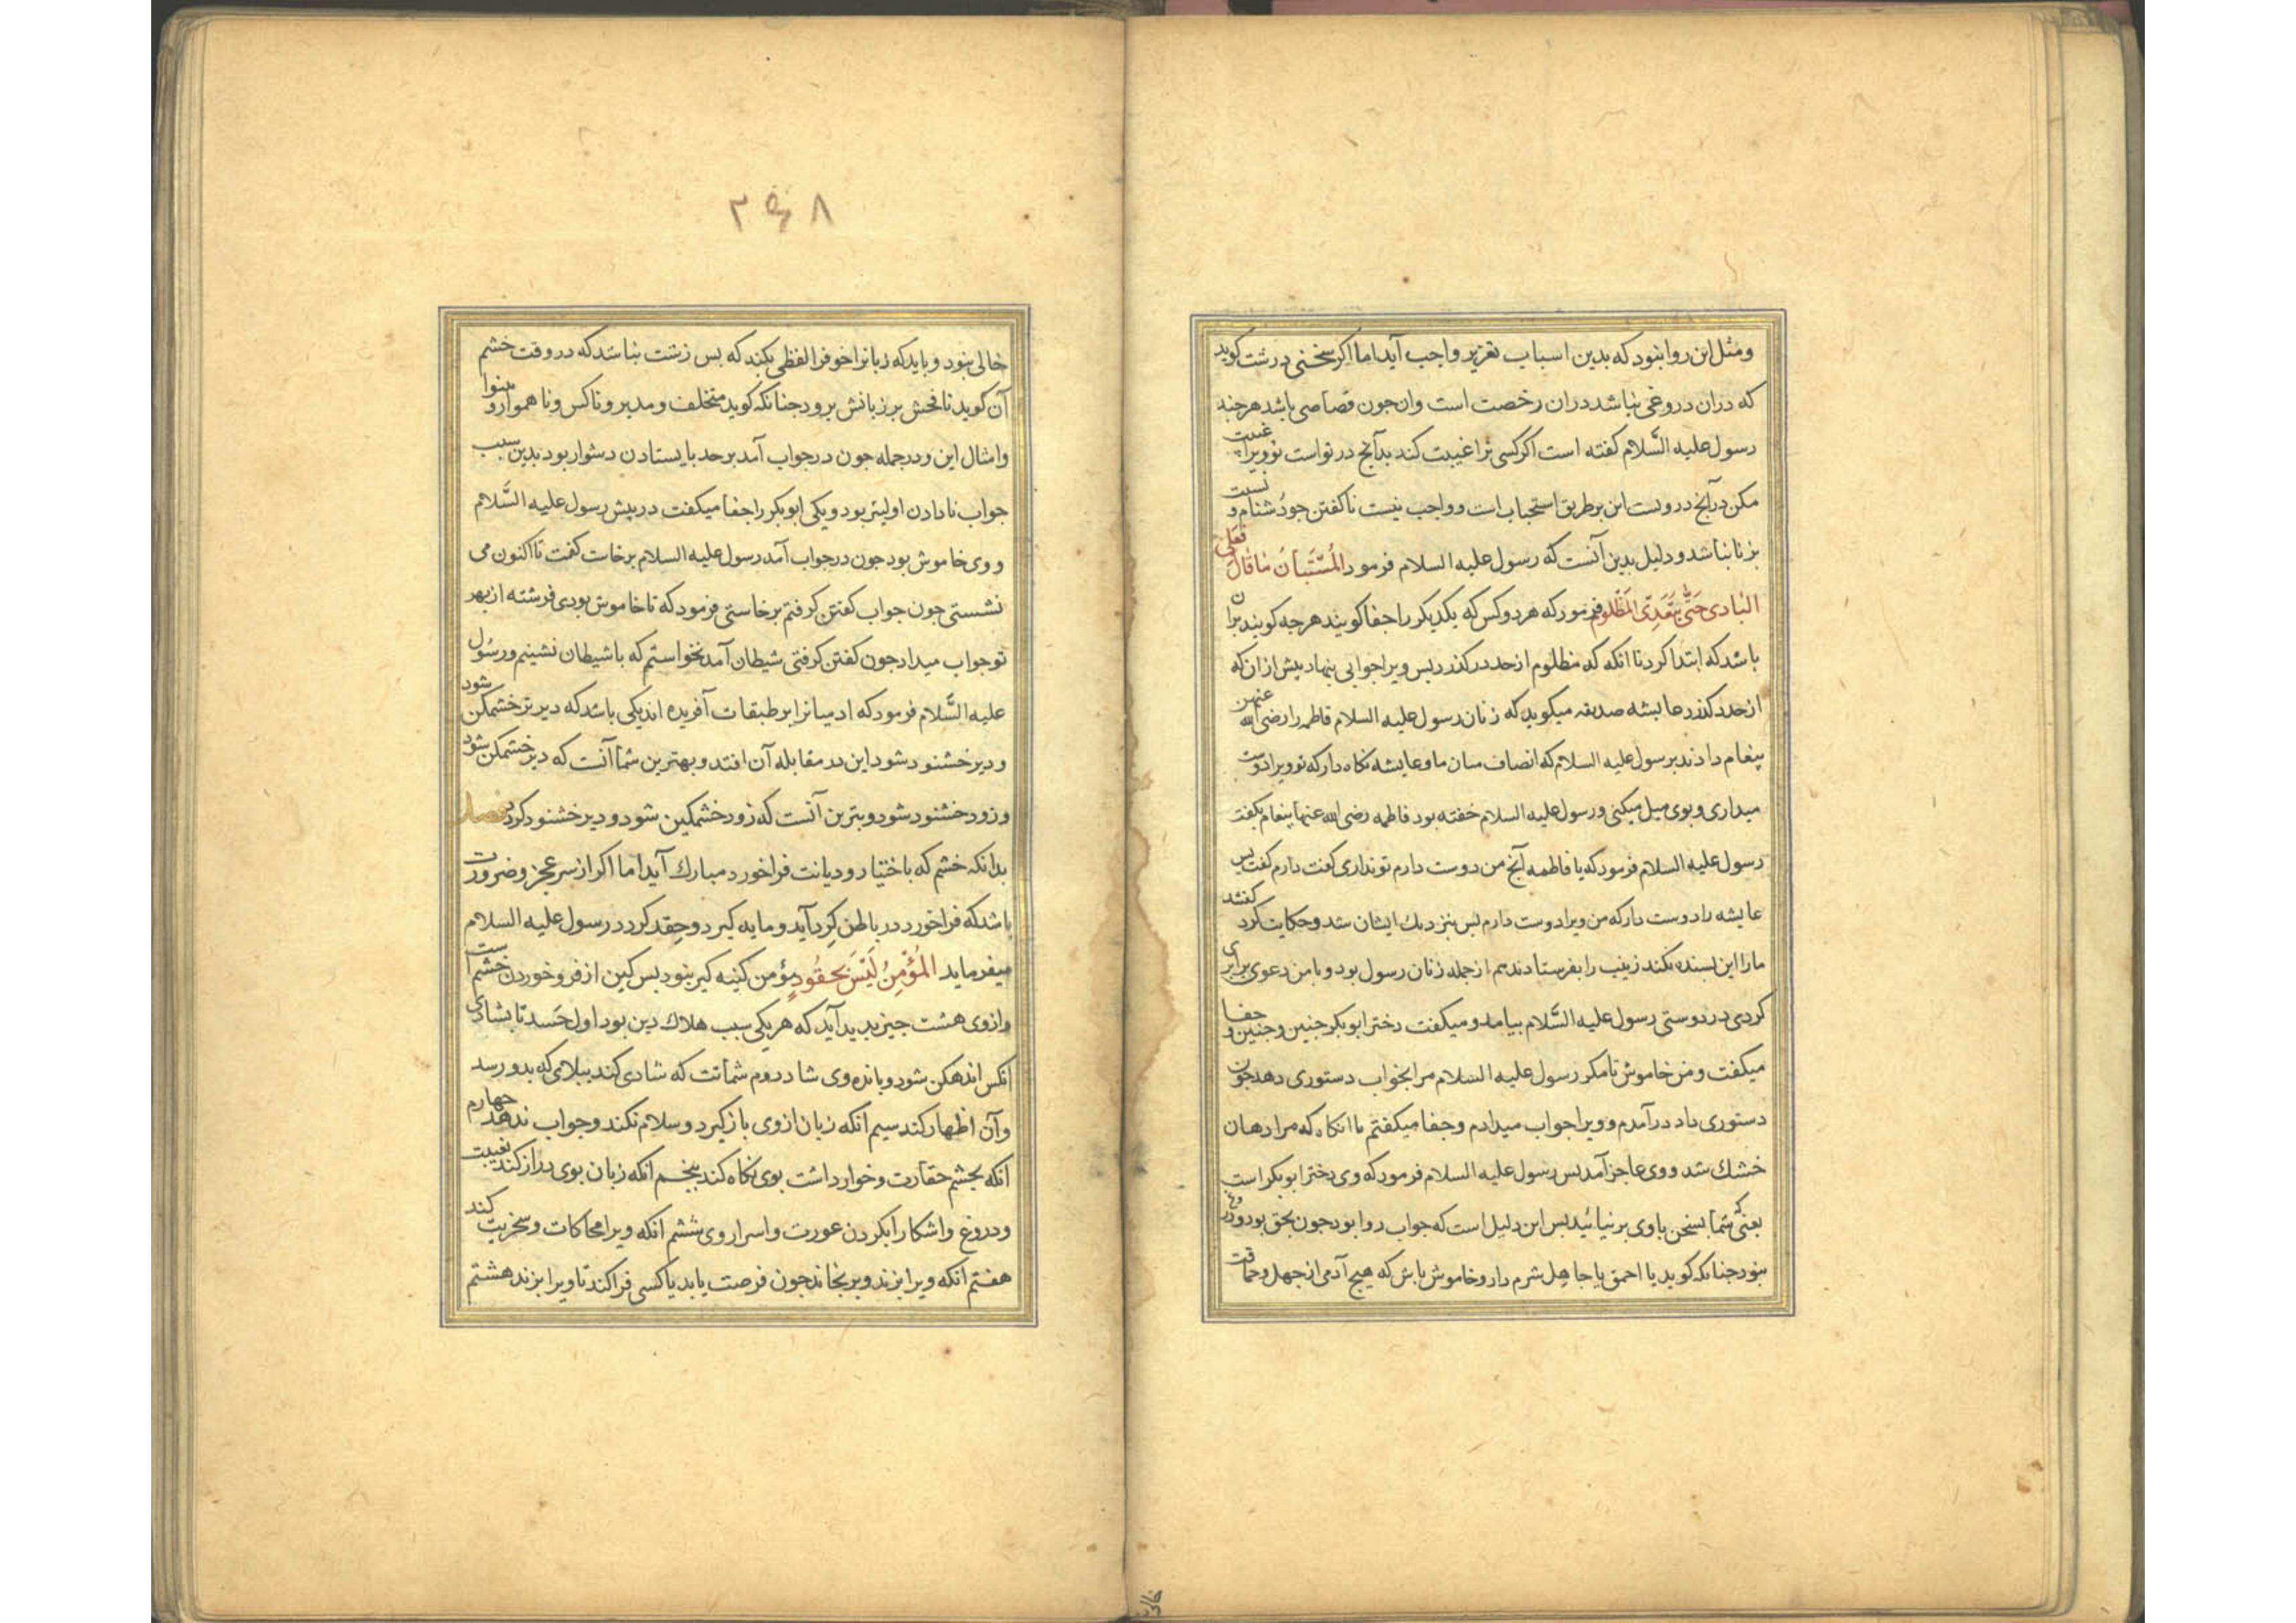 ومثل این روا نبود که بدین اسباب تعزیر واجب آید اما اکر سخنی درشت کوید
که دران دروغی نباشد دران رخصت است وان جون قصاصی باشد هرجند
رسول علیه السَّلام کفته است اکر کسی ترا غیبت کند بدآنج در تواست تو ویرا غیبت
مکن درآنج درویست این برطریق استحباب است و واجب نیست ناکفتن جو دُشنام و نسبت
بزنا نباشد و دلیل بدین آنست که رسول علیه السلام فرمود المُسْتَبَّانُ مَا قَالَا فَعَلَی
البَادی حَتَّی یَتَعَدِّی المَظْلُوم فرمود که هر دوکس که یکدیکر را جفا کویند هرجه کویند بران
باشد که ابتدا کرد تا انکه که مظلوم از حد درکذرد پس ویرا جوابی بنهاد پیش از ان که
از حد درکذرد عایشه صدیقه میکوید که زنان رسول علیه السلام فاطمه را رضی الله عنهم
پیغام دادند برسول علیه السلام که انصاف میان ما و عایشه نکاه دار که تو ویرا دوست
میداری و بوی میل میکنی و رسول علیه السلام خفته بود فاطمه رضی الله عنها پیغام بکفت
رسول علیه السلام فرمود که یا فاطمه آنج من دوست دارم تو نداری کفت دارم کفت پس
عایشه را دوست دار که من ویرا دوست دارم بس بنزدیك ایشان شد و حکایت کرد کفتند
مارا این بسنده نکند زینب را بفرستادند هم از جمله زنان رسول بود و با من دعوی برابری
کردی در دوستی رسول علیه السَّلام بیامد و میکفت دختر ابوبکر جنین و جنین و جفا
میکفت و من خاموش تا مکر رسول علیه السلام مرا بجواب دستوری دهد جون
دستوری داد درآمدم و ویرا جواب میدادم و جفا میکفتم تا انکاه که مرا دهان
خشك شد و وی عاجز آمد بس رسول علیه السلام فرمود که وی دختر ابوبکر است
یعنی که شما بسخن باوی برنیائید بس این دلیل است که جواب روا بود جون بحق بود و دروغ
نبود جنانکه کوید یا احمق یا جاهِل شرم دار و خاموش باش که هیج آدمی از جهل و حماقت
۳۶۸
خالی نبود و باید که زبانرا خو فرا لفظی بکند که بس زشت نباشد که در وقت خشم
آن کوید تا فحش بر زبانش نرود جنانکه کوید متخلف و مدبر و ناکس و ناهموار و بینوا
وامثال این و درجمله جون درجواب آمد برحد بایستادن دشوار بود بدین سبب
جواب نادادن اولیتر بود و یکی ابوبکر را جفا میکفت در پیش رسول علیه السَّلام
و وی خاموش بود جون درجواب آمد رسول علیه السلام برخاست کفت تا اکنون می
نشستی جون جواب کفتن کرفتم برخاستی فرمود که تا خاموش بودی فرشته از بهر
تو جواب میداد جون کفتن کرفتی شیطان آمد نخواستم که با شیطان نشینم و رسُول
علیه السَّلام فرمود که ادمیانرا بر طبقات آفریده اند یکی باشد که دیر تر خشمکن شود
و دیر خشنود شود این در مقابله آن افتد و بهترین شما آنست که دیر خشمکن شود
و زود خشنود شود و بترین آنست که زود خشمکین شود و دیر خشنود کردد فصل
بدانکه خشم که باختیار و دیانت فرا خورد مبارك آید اما اکر از سر عجز و ضرورت
باشد که فرا خورد در باطن کِرد آید و مایه کیرد و حِقد کردد رسول علیه السلام
میفرماید المُؤْمِنُ لَیْسَ بِحَقُودٍ مؤمن کینه کیر نبود بس کین از فرو خوردن خشم آست
وازوی هشت جیز بدید آید که هر یکی سبب هلاك دین بود اول حَسد تا بشادی
انکس اندهکن شود و باندوه وی شاد دوم شماتت که شادی کند ببلائی که بدو رسد
وآن اظهار کند سیم انکه زبان ازوی بازکیرد و سلام نکند و جواب ندهد جهارم
انکه بجشم حقارت و خوارداشت بوی نکاه کند پنجم انکه زبان بوی دراز کند بغیبت
و دروغ و اشکارا بکردن عورت و اسرار وی ششم انکه ویرا محاکات و سخریت کند
هفتم آنکه ویرا بزند و برنجاند جون فرصت یابد یا کسی فرا کند تا ویرا بزند هشتم